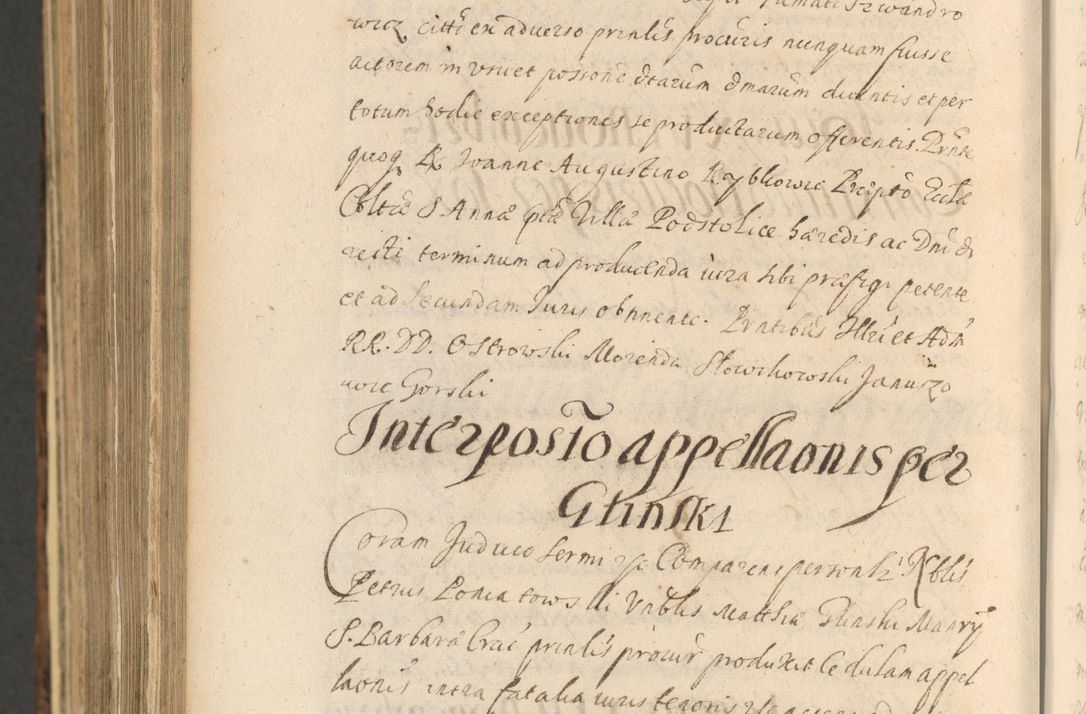 wicz citti ex adverso prinlis procuris nunquam fuisse
actorem in usu et possone dtarum dmarum ducentis et per
totum hodie exceptiones se producturum offerentis. Prnte
quoq R. Joanne Augustino Rybkowic Prcipto Eccle
Coltae S. Annae ptae Villae Podstolice haeredis ac Dni di
recti terminum ad producenda iura sibi praefigi petente
et ad secundam Juris obtinente. Prntibus Illri et Adm
RR. DD. Ostrowski Morenda Slowikowski Januszo
wic Gorski
Interposito appellaonis per
Glinski
Coram Judicio Sermi rse Comparens personlr Nblis
Petrus Poniatowski Vnblis Matthiae Glinski Manry
S. Barbarae Crac prinlis procur produxit Cedulam appel
laonis intra fatalia iuris tenoris